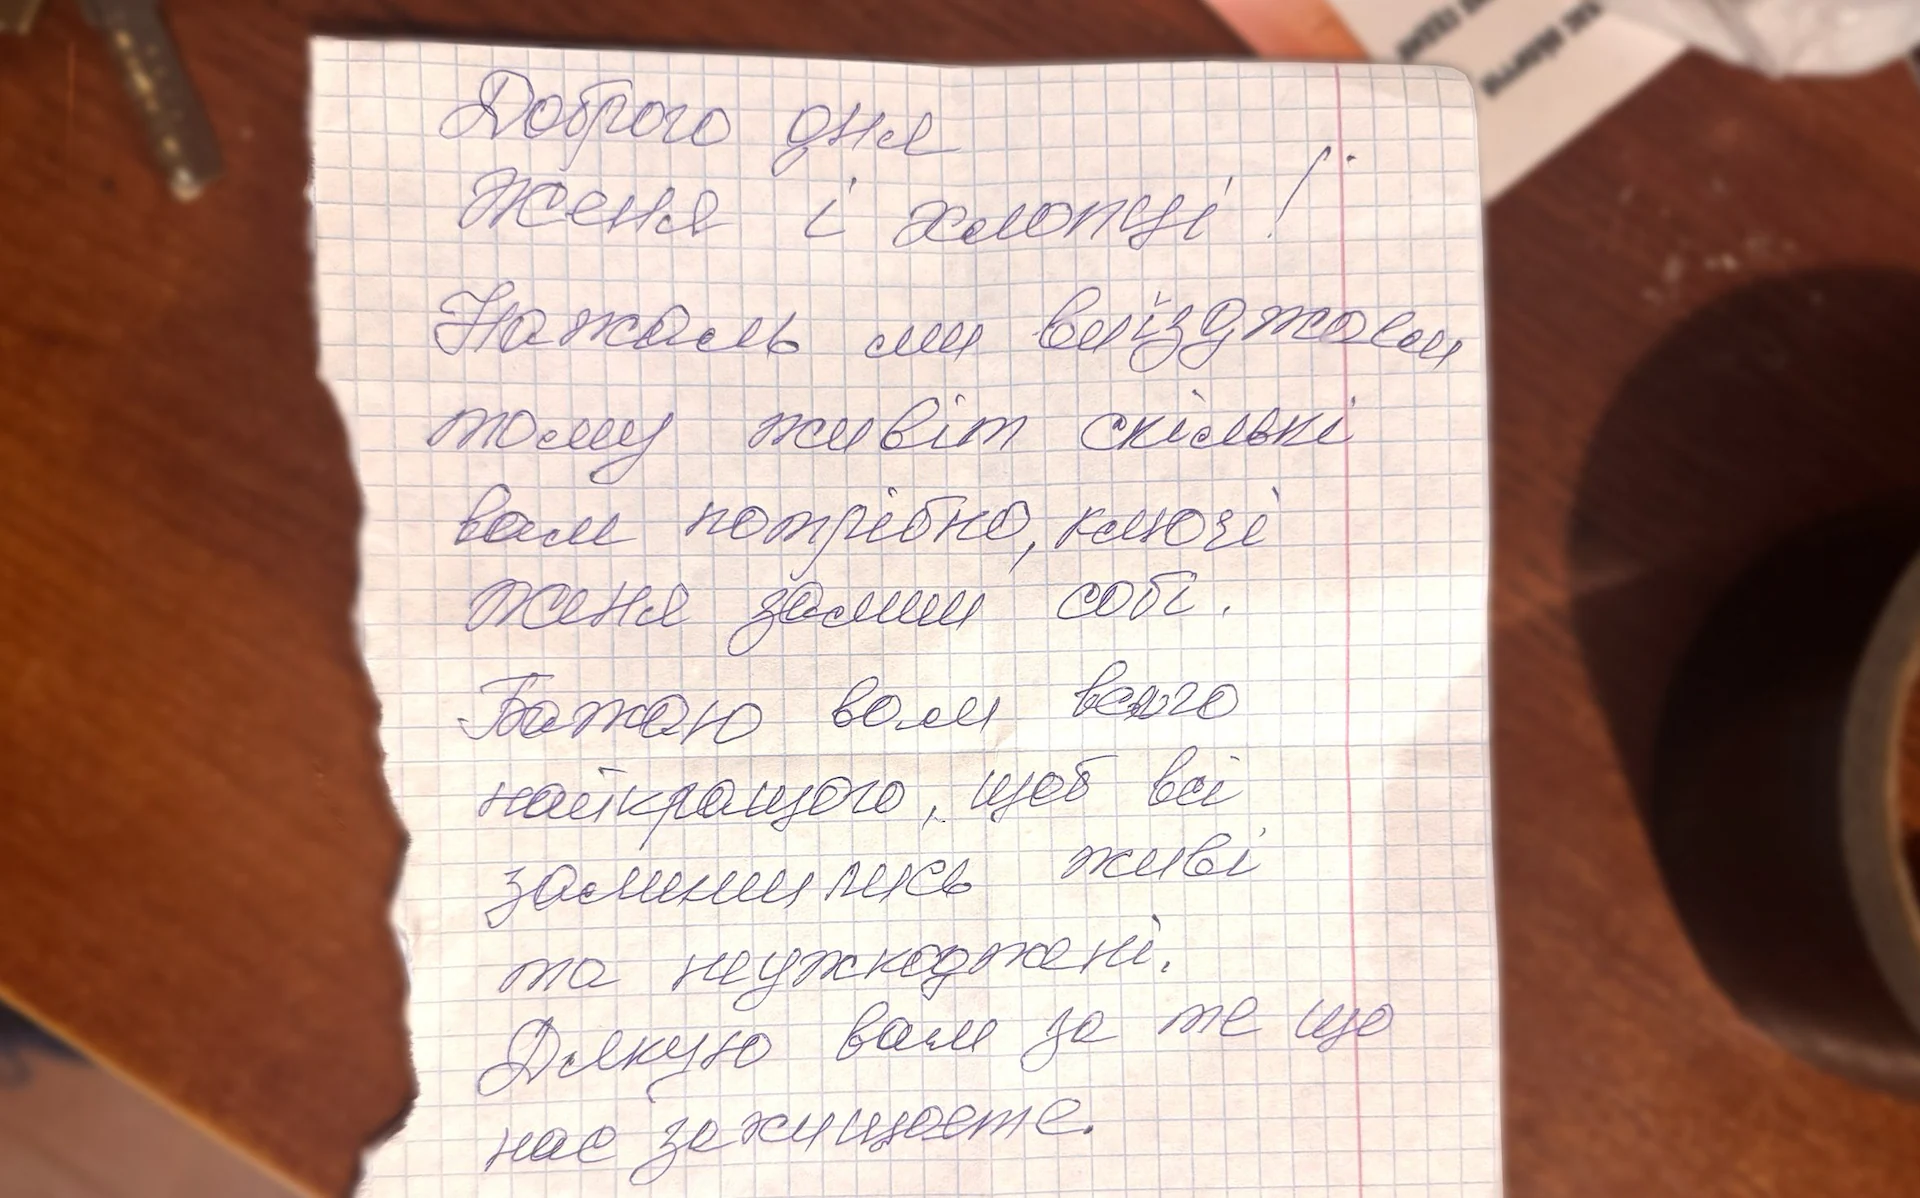 Доброго дня
Женя і хлопці!
На жаль ми виїзджаєм
тому живіт скількі
вам потрібно, ключі
женя залиш собі.
Бажаю вам всього
найкращого, щоб всі
залишились живі
та неужкоджені.
Дякую вам за те що
нас захищаєте.